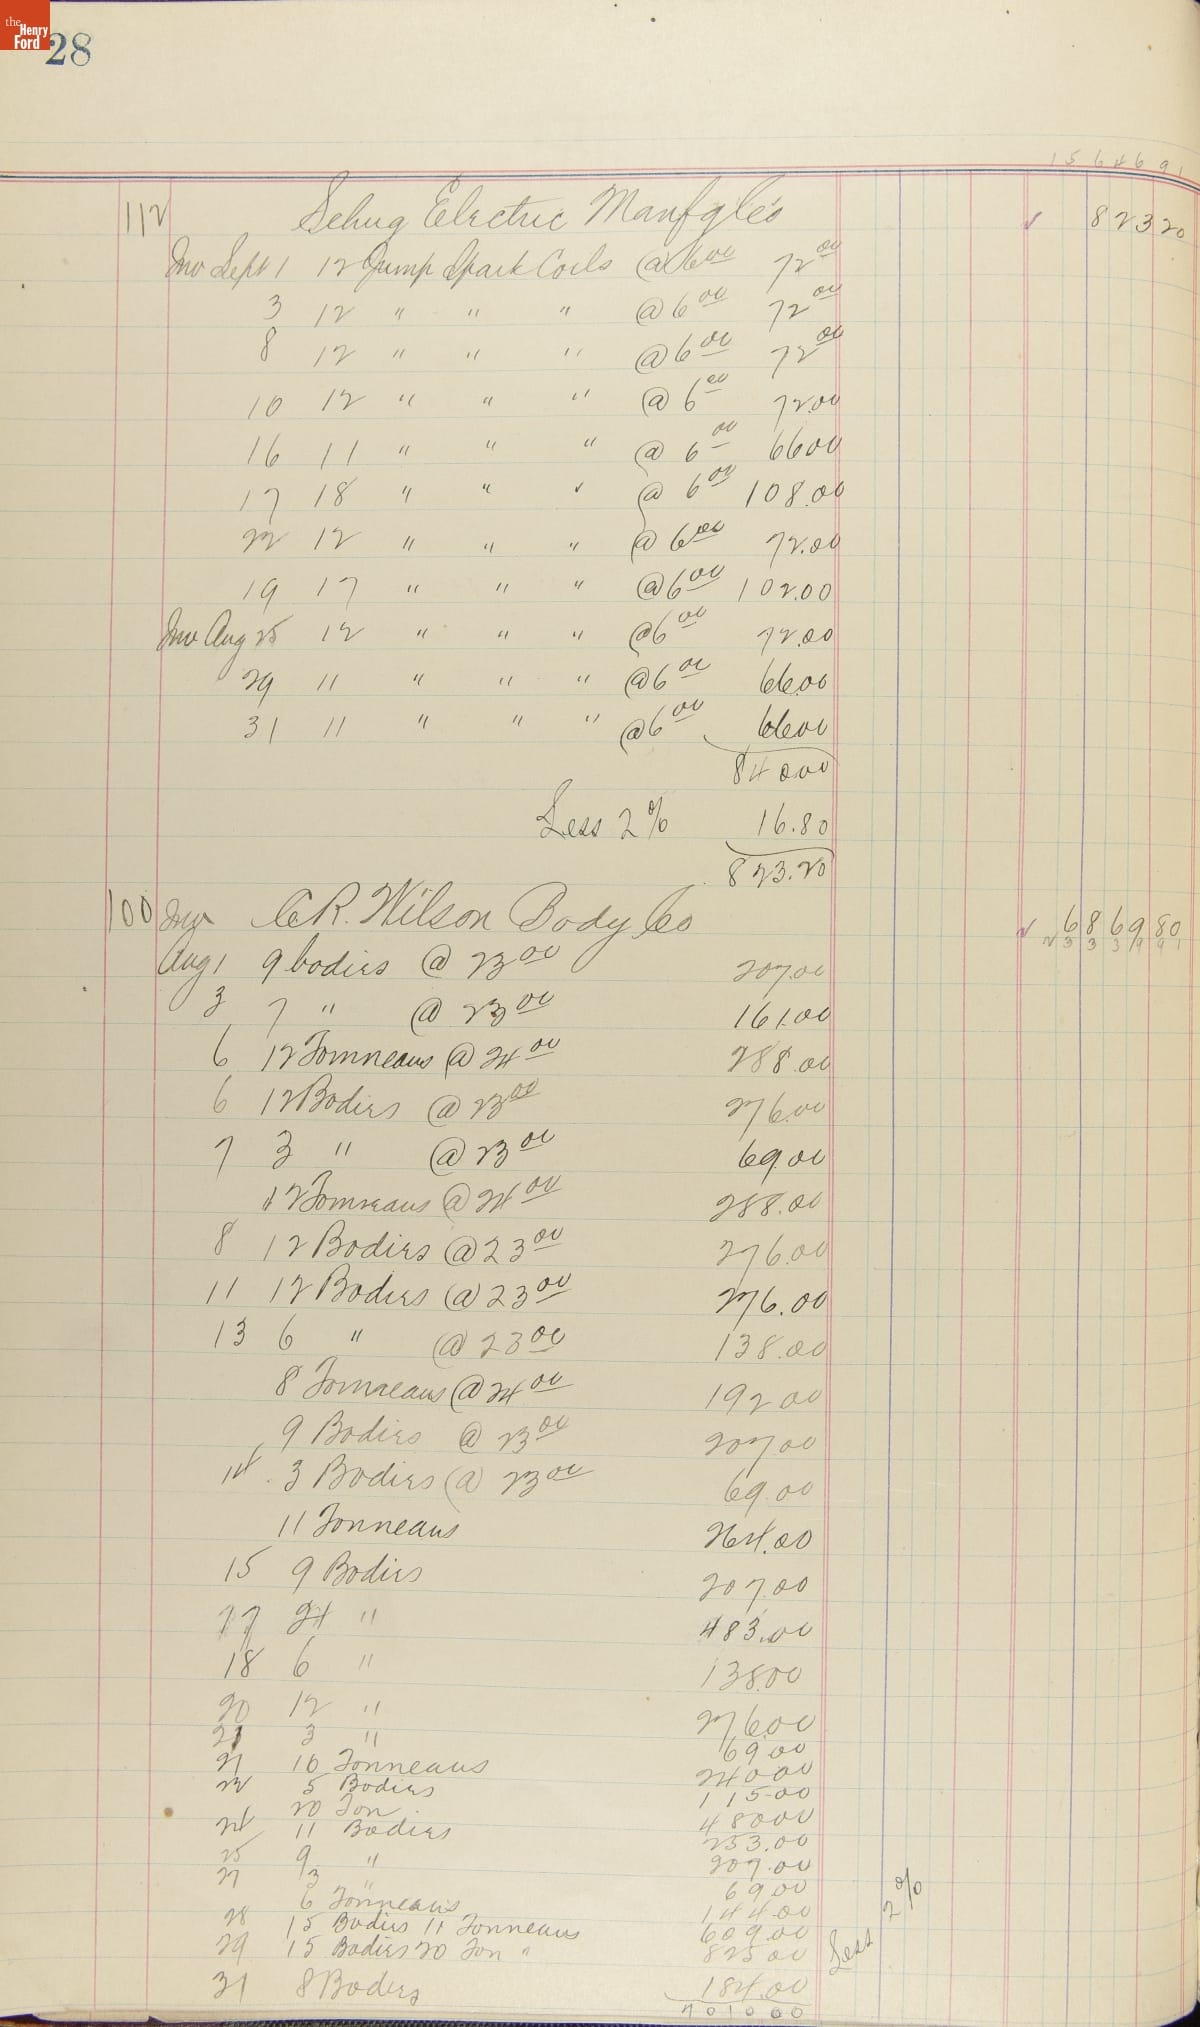 the
Henry
Ford
28
1564691
112 Schug Electric Manfg Co's ✓ 823 20
Inv Sept 1 12 Jump Spark Coils @ 6 00 72 00
3 12 " " " @ 6 00 72 00
8 12 " " " @ 6 00 72 00
10 12 " " " @ 6 00 72.00
16 11 " " " @ 6 00 66 00
17 18 " " " @ 6 00 108.00
22 12 " " " @ 6 00 72.00
19 17 " " " @ 6 00 102.00
Inv Aug 25 12 " " " @ 6 00 72.00
29 11 " " " @ 6 00 66.00
31 11 " " " @ 6 00 66.00
840.00
Less 2% 16.80
823.20
100 Inv C R. Wilson Body Co ✓ 6869 80
2333991
Aug 1 9 bodies @ 23 00 207.00
3 7 " @ 23 00 161.00
6 12 Tonneaus @ 24 00 288.00
6 12 Bodies @ 23 00 276.00
7 3 " @ 23 00 69.00
12 Tonneaus @ 24 00 288.00
8 12 Bodies @ 23 00 276.00
11 12 Bodies @ 23 00 276.00
13 6 " @ 23 00 138.00
8 Tonneaus @ 24 00 192 00
9 Bodies @ 23 00 207 00
14 3 Bodies @ 23 00 69.00
11 Tonneaus 264.00
15 9 Bodies 207.00
17 21 " 483.00
18 6 " 138.00
20 12 " 276.00
21 3 " 69.00
21 10 Tonneaus 240.00
22 5 Bodies 115.00
20 Ton 480.00
24 11 Bodies 253.00
25 9 " 207.00
27 3 " 69.00
6 Tonneaus 144.00
28 15 Bodies 11 Tonneaus 609.00
29 15 Bodies 20 Ton " 825 00
31 8 Bodies 184.00
7010 00
Less 2%